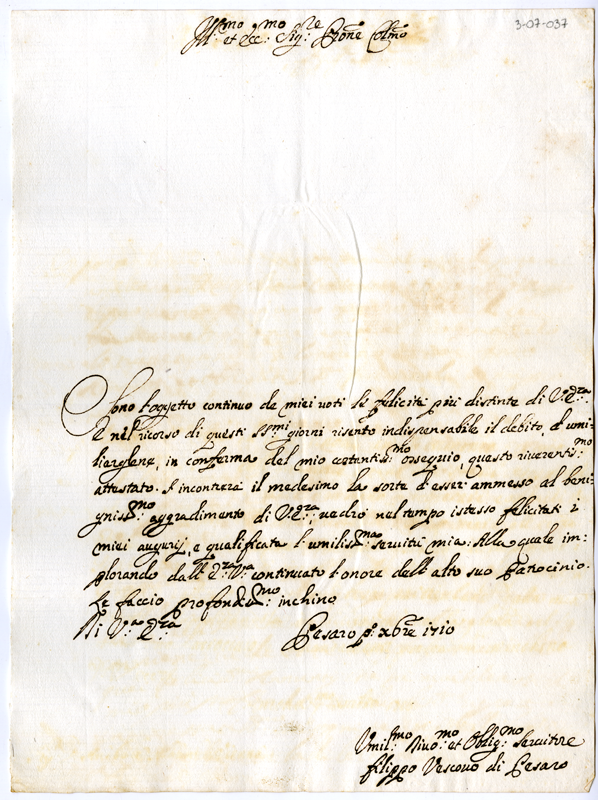 3-07-037
Ill:mo et Ecc:mo Sig:re Prone Colmo
Sono l'oggetto continuo de miei voti le felicità più distinte di V: E:za
E nel ricorso di questi SS:mi giorni risento indispensabile il debito, d'umi-
liargliene, in conferma del mio costantis:mo ossequio, questo riverentis:mo
attestato. S'incontrerà il medesimo la sorte d'esser ammesso al beni-
gniss:mo aggradimento di V: E:za, vedrò nel tempo istesso felicitati i
miei augurij, e qualificata l'umilis:ma servitù mia. Alla quale im-
plorando dall'E:za V:a continuato l'onore dell'alto suo Patrocinio.
Le faccio profondis:mo inchino
Di V:a E:za
Pesaro p:o xbre 1710
Umil:mo Divo:mo et Oblig:mo Servitore
filippo Vescovo di Pesaro